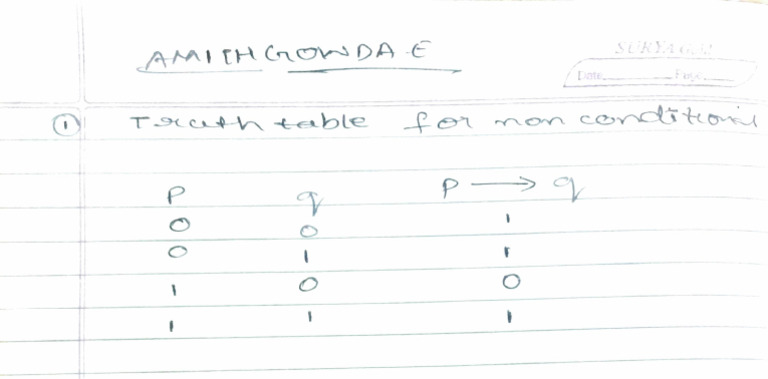 AMITH GOWDA E
SURYA Gold
Date Page
① Truth table for non conditional
p q p → q
0 0 1
0 1 1
1 0 0
1 1 1